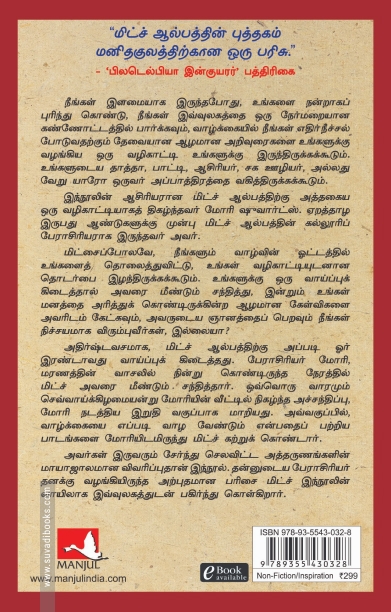 “மிட்ச் ஆல்பத்தின் புத்தகம்
மனிதகுலத்திற்கான ஒரு பரிசு.”
– ‘பிலடெல்பியா இன்குயரர்’ பத்திரிகை
நீங்கள் இளமையாக இருந்தபோது, உங்களை நன்றாகப்
புரிந்து கொண்டு, நீங்கள் இவ்வுலகத்தை ஒரு நேர்மறையான
கண்ணோட்டத்தில் பார்க்கவும், வாழ்க்கையில் நீங்கள் எதிர்நீச்சல்
போடுவதற்கும் தேவையான ஆழமான அறிவுரைகளை உங்களுக்கு
வழங்கிய ஒரு வழிகாட்டி உங்களுக்கு இருந்திருக்கக்கூடும்.
உங்களுடைய தாத்தா, பாட்டி, ஆசிரியர், சக ஊழியர், அல்லது
வேறு யாரோ ஒருவர் அப்பாத்திரத்தை வகித்திருக்கக்கூடும்.
இந்நூலின் ஆசிரியரான மிட்ச் ஆல்பத்திற்கு அத்தகைய
ஒரு வழிகாட்டியாகத் திகழ்ந்தவர் மோரி ஷுவார்ட்ஸ். ஏறத்தாழ
இருபது ஆண்டுகளுக்கு முன்பு மிட்ச் ஆல்பத்தின் கல்லூரிப்
பேராசிரியராக இருந்தவர் அவர்.
மிட்சைப்போலவே, நீங்களும் வாழ்வின் ஓட்டத்தில்
உங்களைத் தொலைத்துவிட்டு, உங்கள் வழிகாட்டியுடனான
தொடர்பை இழந்திருக்கக்கூடும். உங்களுக்கு ஒரு வாய்ப்புக்
கிடைத்தால் அவரை மீண்டும் சந்தித்து, இன்றும் உங்கள்
மனத்தை அரித்துக் கொண்டிருக்கின்ற ஆழமான கேள்விகளை
அவரிடம் கேட்கவும், அவருடைய ஞானத்தைப் பெறவும் நீங்கள்
நிச்சயமாக விரும்புவீர்கள், இல்லையா?
அதிர்ஷ்டவசமாக, மிட்ச் ஆல்பத்திற்கு அப்படி ஓர்
இரண்டாவது வாய்ப்புக் கிடைத்தது. பேராசிரியர் மோரி,
மரணத்தின் வாசலில் நின்று கொண்டிருந்த நேரத்தில்
மிட்ச் அவரை மீண்டும் சந்தித்தார். ஒவ்வொரு வாரமும்
செவ்வாய்க்கிழமையன்று மோரியின் வீட்டில் நிகழ்ந்த அச்சந்திப்பு,
மோரி நடத்திய இறுதி வகுப்பாக மாறியது. அவ்வகுப்பில்,
வாழ்க்கையை எப்படி வாழ வேண்டும் என்பதைப் பற்றிய
பாடங்களை மோரியிடமிருந்து மிட்ச் கற்றுக் கொண்டார்.
அவர்கள் இருவரும் சேர்ந்து செலவிட்ட அத்தருணங்களின்
மாயாஜாலமான விவரிப்புதான் இந்நூல். தன்னுடைய பேராசிரியர்
தனக்கு வழங்கியிருந்த அற்புதமான பரிசை மிட்ச் இந்நூலின்
வாயிலாக இவ்வுலகத்துடன் பகிர்ந்து கொள்கிறார்.
www.suvadibooks.com
MANJUL
www.manjulindia.com
eBook
available
ISBN 978-93-5543-032-8
9 789355 430328
Non-Fiction/Inspiration ₹299